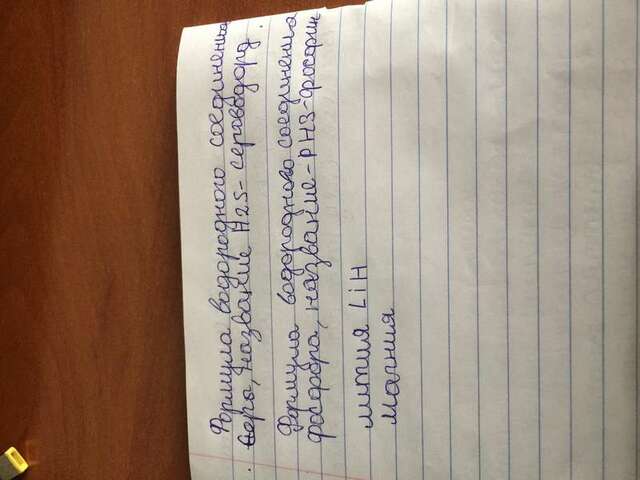 Формула водородного соединения
серы, название H2S- сероводорд.
Формула водородново соединения
фосфора, название-PH3-фосфин
лития LiH
Магния